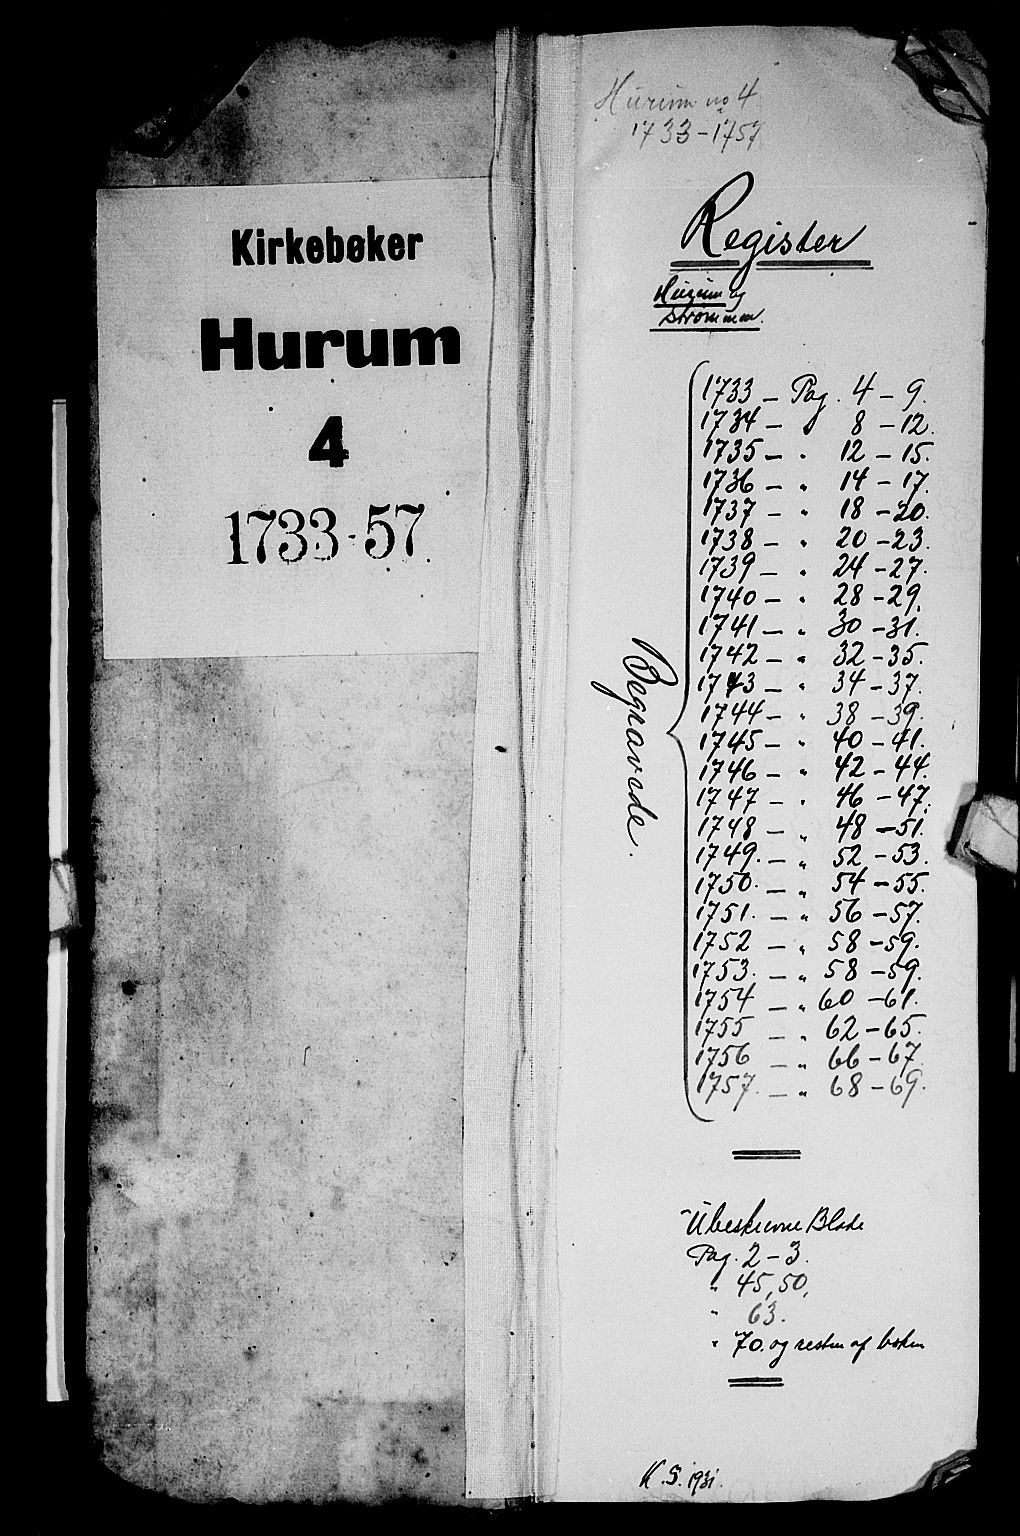 Kirkebøker
Hurum
4
1733-57.
Hurum no 4
1733-1757
Register
Hurum og
Strømmen.
Begravede.
1733 - Pag. 4 - 9.
1734 - " 8 - 12.
1735 - " 12 - 15.
1736 - " 14 - 17.
1737 - " 18 - 20.
1738 - " 20 - 23.
1739 - " 24 - 27.
1740 - " 28 - 29.
1741 - " 30 - 31.
1742 - " 32 - 35.
1743 - " 34 - 37.
1744 - " 38 - 39.
1745 - " 40 - 41.
1746 - " 42 - 44.
1747 - " 46 - 47.
1748 - " 48 - 51.
1749. - " 52 - 53.
1750. - " 54 - 55.
1751. - " 56 - 57.
1752 - " 58 - 59.
1753. - " 58 - 59.
1754 - " 60 - 61.
1755 - " 62 - 65.
1756 - " 66 - 67.
1757. - " 68 - 69.
Ubeskrevne Blade
Pag. 2 - 3.
" 45, 50,
" 63.
" 70. og resten af boken
K. S. 1931.